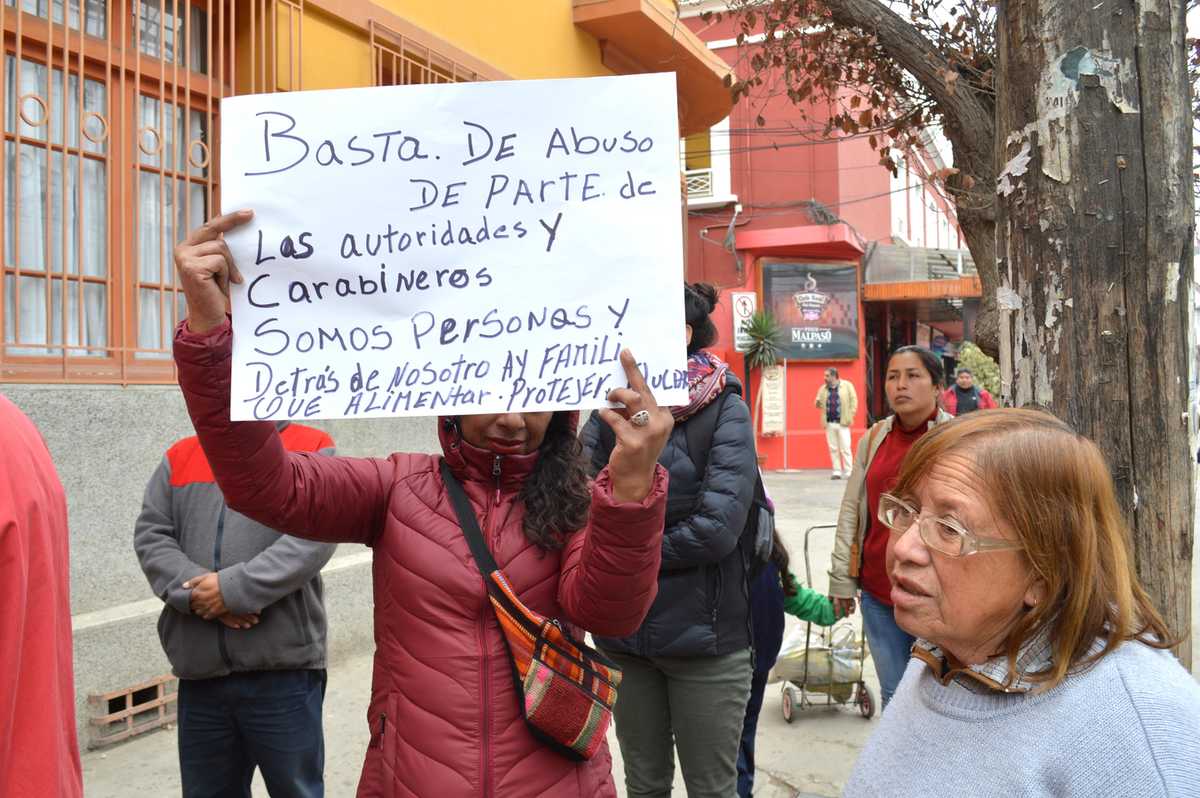 Basta. DE Abuso
DE PARTE. de
Las autoridades y
Carabineros
SOMOS PERSONAS Y
Detrás de NOSOTRO AY FAMILI
QUE ALIMENTAR. PROTEJER.
MALPASÓ